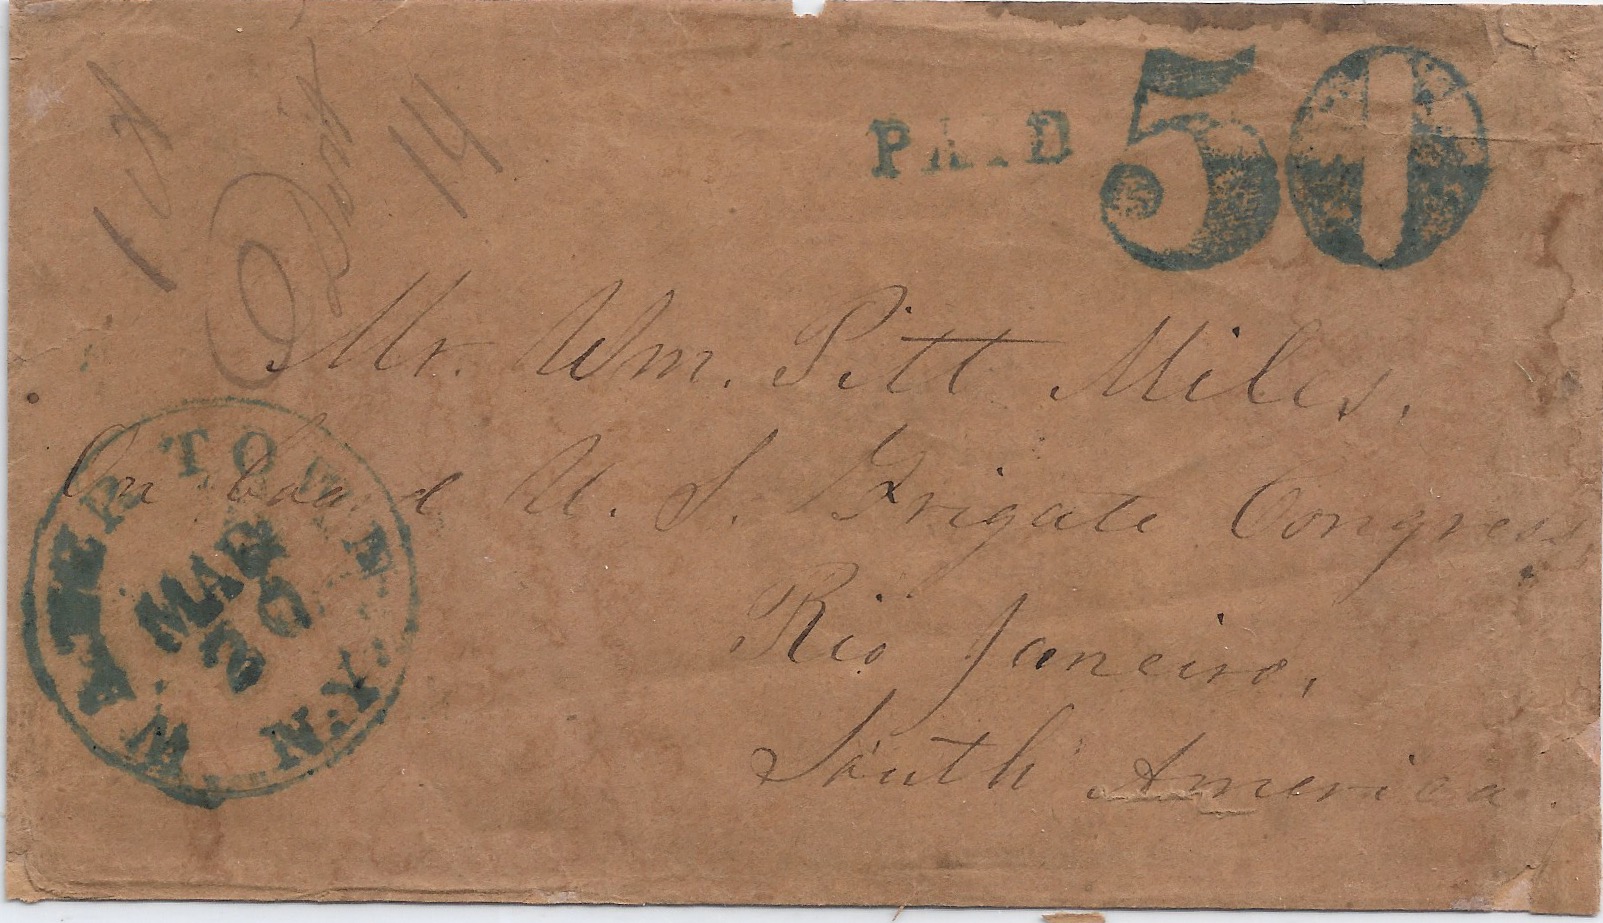 PAID 50
14
Mr. Wm. Pitt Miles.
On board U. S. Frigate Congress,
Rio Janeiro,
South America
WATERTOWN N.Y.
MAR
20